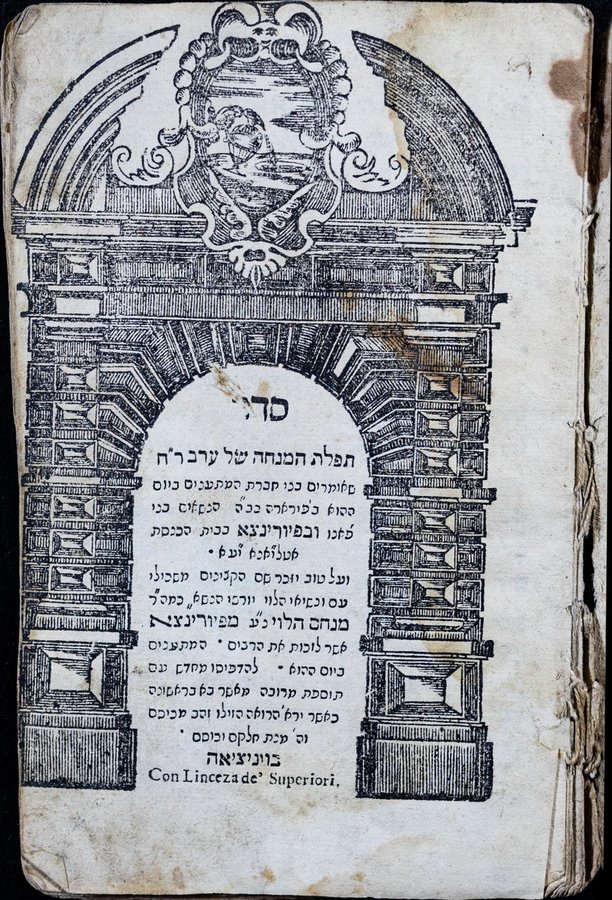 סדר
תפלת המנחה של ערב ר״ח
שאומרים בני חברת המתענים ביום
ההוא בפירארה בב״ה הנשאים בני
פאנו ובפיורינצא בבית הכנסת
אטליאנא יע״א ·
ועל טוב יזכר שם הקצינים משכילי
עם ונשיאי הלוי יורשי הנשא׳ כמה״ר
מנחם הלוי נ״ע מפיורינצא
אשר לזכות את הרבים · המתענים
ביום ההוא · להדפיסו מחדש עם
תוספת מרובה מאשר בא בראשונה
כאשר ירא׳ הרואה הזילו זהב מכיסם
וה׳ מנת חלקם וכוסם ·
בויניציאה
Con Linceza de' Superiori,